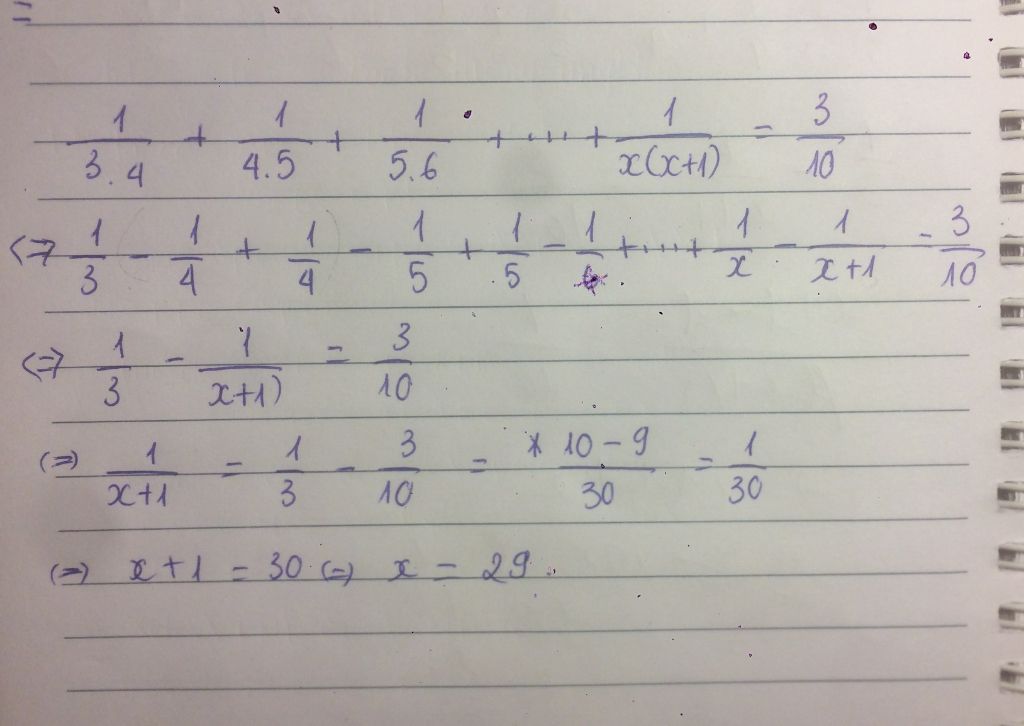 =
1/(3.4) + 1/(4.5) + 1/(5.6) + .... + 1/(x(x+1)) = 3/10
<=> 1/3 - 1/4 + 1/4 - 1/5 + 1/5 - 1/6 + .... + 1/x - 1/(x+1) = 3/10
<=> 1/3 - 1/(x+1) = 3/10
(=) 1/(x+1) = 1/3 - 3/10 = (10-9)/30 = 1/30
(=) x+1 = 30 (=) x = 29.